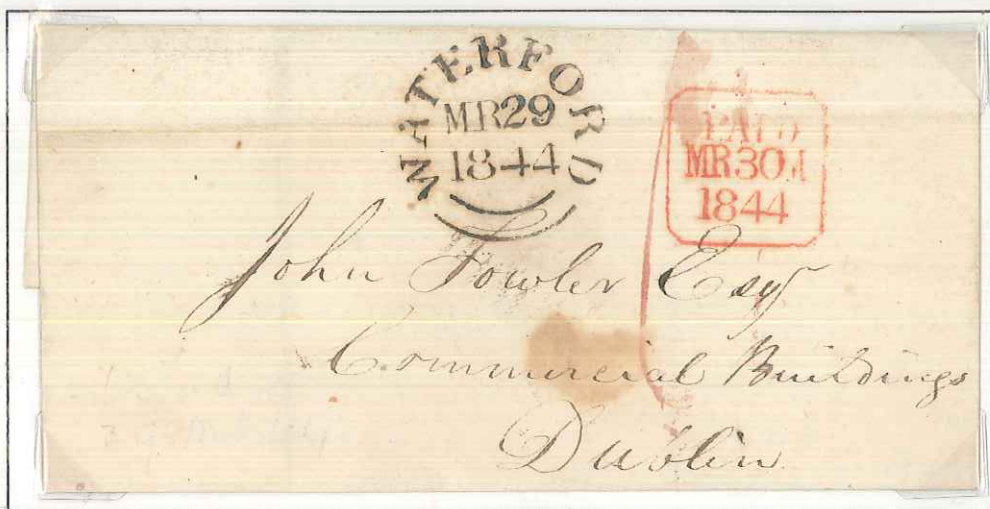 WATERFORD
MR29
1844
PAID
MR30
1844
John Fowler Esq
Commercial Buildings
Dublin